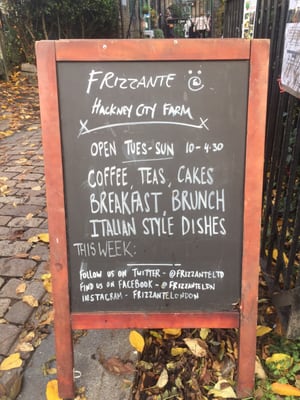 FRIZZANTE @
HACKNEY CITY FARM
OPEN TUES-SUN 10-4.30
COFFEE, TEAS, CAKES
BREAKFAST, BRUNCH
ITALIAN STYLE DISHES
THIS WEEK:
FOLLOW US ON TWITTER - @FRIZZANTELTD
FIND US ON FACEBOOK - @FRIZZANTELDN
INSTAGRAM - FRIZZANTELONDON